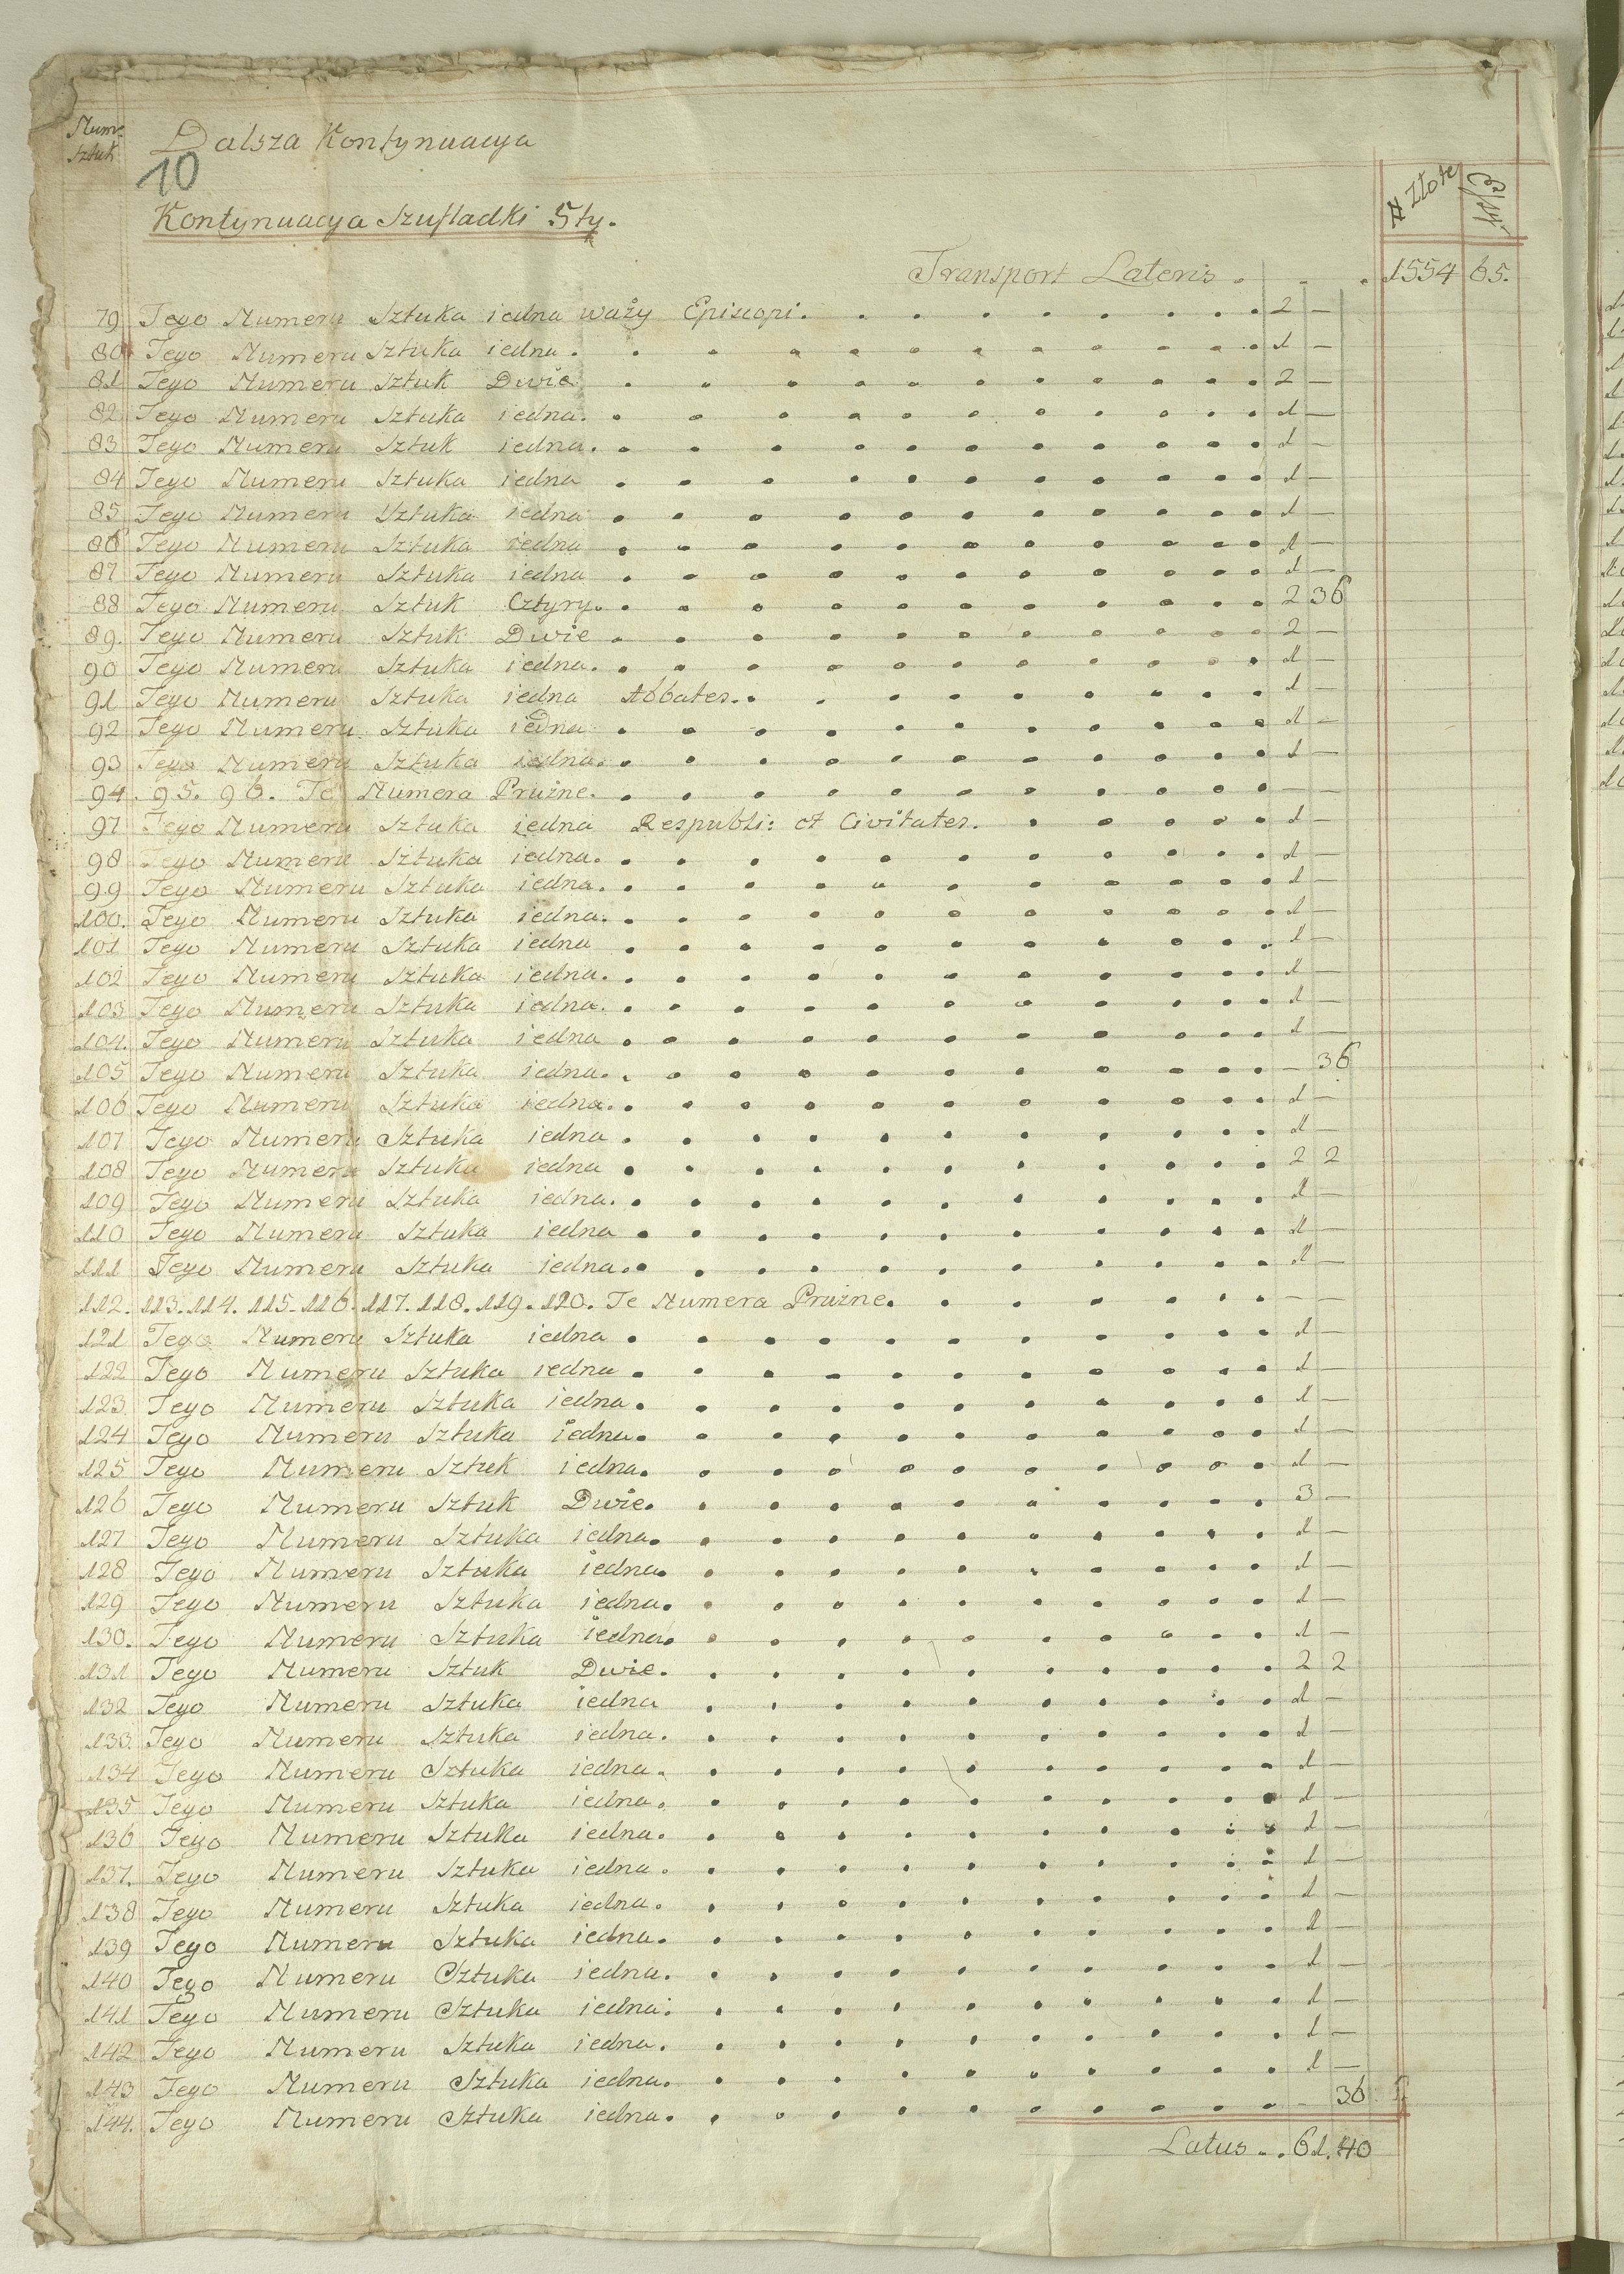 Num: Sztuk
Dalsza Kontynuacya
10
Kontynuacya Szufladki 5ty.
# Złote
Transport Lateris . . . 1554 65.
79 Tego Numeru Sztuka iedna waży Episcopi. 2 —
80 Tego Numeru Sztuka iedna. 1 —
81 Tego Numeru Sztuk Dwie 2 —
82 Tego Numeru Sztuka iedna. 1 —
83 Tego Numeru Sztuk iedna. 1 —
84 Tego Numeru Sztuka iedna 1 —
85 Tego Numeru Sztuka iedna 1 —
86 Tego Numeru Sztuka iedna 1 —
87 Tego Numeru Sztuka iedna 1 —
88 Tego Numeru Sztuk Cztyry. 2 36
89. Tego Numeru Sztuk Dwie 2 —
90 Tego Numeru Sztuka iedna. 1 —
91 Tego Numeru Sztuka iedna Abbates. 1 —
92 Tego Numeru Sztuka iedna 1 —
93 Tego Numeru Sztuka iedna. 1 —
94. 95. 96. Te Numera Prużne. — —
97 Tego Numeru Sztuka iedna Respubli: et Civitates. 1 —
98 Tego Numeru Sztuka iedna. 1 —
99 Tego Numeru Sztuka iedna. 1 —
100. Tego Numeru Sztuka iedna. 1 —
101 Tego Numeru Sztuka iedna 1 —
102 Tego Numeru Sztuka iedna. 1 —
103 Tego Numeru Sztuka iedna. 1 —
104. Tego Numeru Sztuka iedna 1 —
105 Tego Numeru Sztuka iedna. — 36
106 Tego Numeru Sztuka iedna. 1 —
107 Tego Numeru Sztuka iedna 1 —
108 Tego Numeru Sztuka iedna 2 2
109 Tego Numeru Sztuka iedna. 1 —
110 Tego Numeru Sztuka iedna 1 —
111 Tego Numeru Sztuka iedna. 1 —
112. 113. 114. 115. 116. 117. 118. 119. 120. Te Numera Prużne. — —
121 Tego Numeru Sztuka iedna 1 —
122 Tego Numeru Sztuka iedna 1 —
123 Tego Numeru Sztuka iedna. 1 —
124 Tego Numeru Sztuka iedna. 1 —
125 Tego Numeru Sztuk iedna. 1 —
126 Tego Numeru Sztuk Dwie. 3 —
127 Tego Numeru Sztuka iedna. 1 —
128 Tego Numeru Sztuka iedna. 1 —
129 Tego Numeru Sztuka iedna. 1 —
130. Tego Numeru Sztuka iedna. 1 —
131 Tego Numeru Sztuk Dwie. 2 2
132 Tego Numeru Sztuka iedna 1 —
133. Tego Numeru Sztuka iedna. 1 —
134 Tego Numeru Sztuka iedna. 1 —
135 Tego Numeru Sztuka iedna. 1 —
136 Tego Numeru Sztuka iedna. 1 —
137. Tego Numeru Sztuka iedna. 1 —
138 Tego Numeru Sztuka iedna. 1 —
139 Tego Numeru Sztuka iedna. 1 —
140 Tego Numeru Sztuka iedna. 1 —
141 Tego Numeru Sztuka iedna. 1 —
142 Tego Numeru Sztuka iedna. 1 —
143 Tego Numeru Sztuka iedna. 1 —
144. Tego Numeru Sztuka iedna. — 36
Latus . . 61. 40